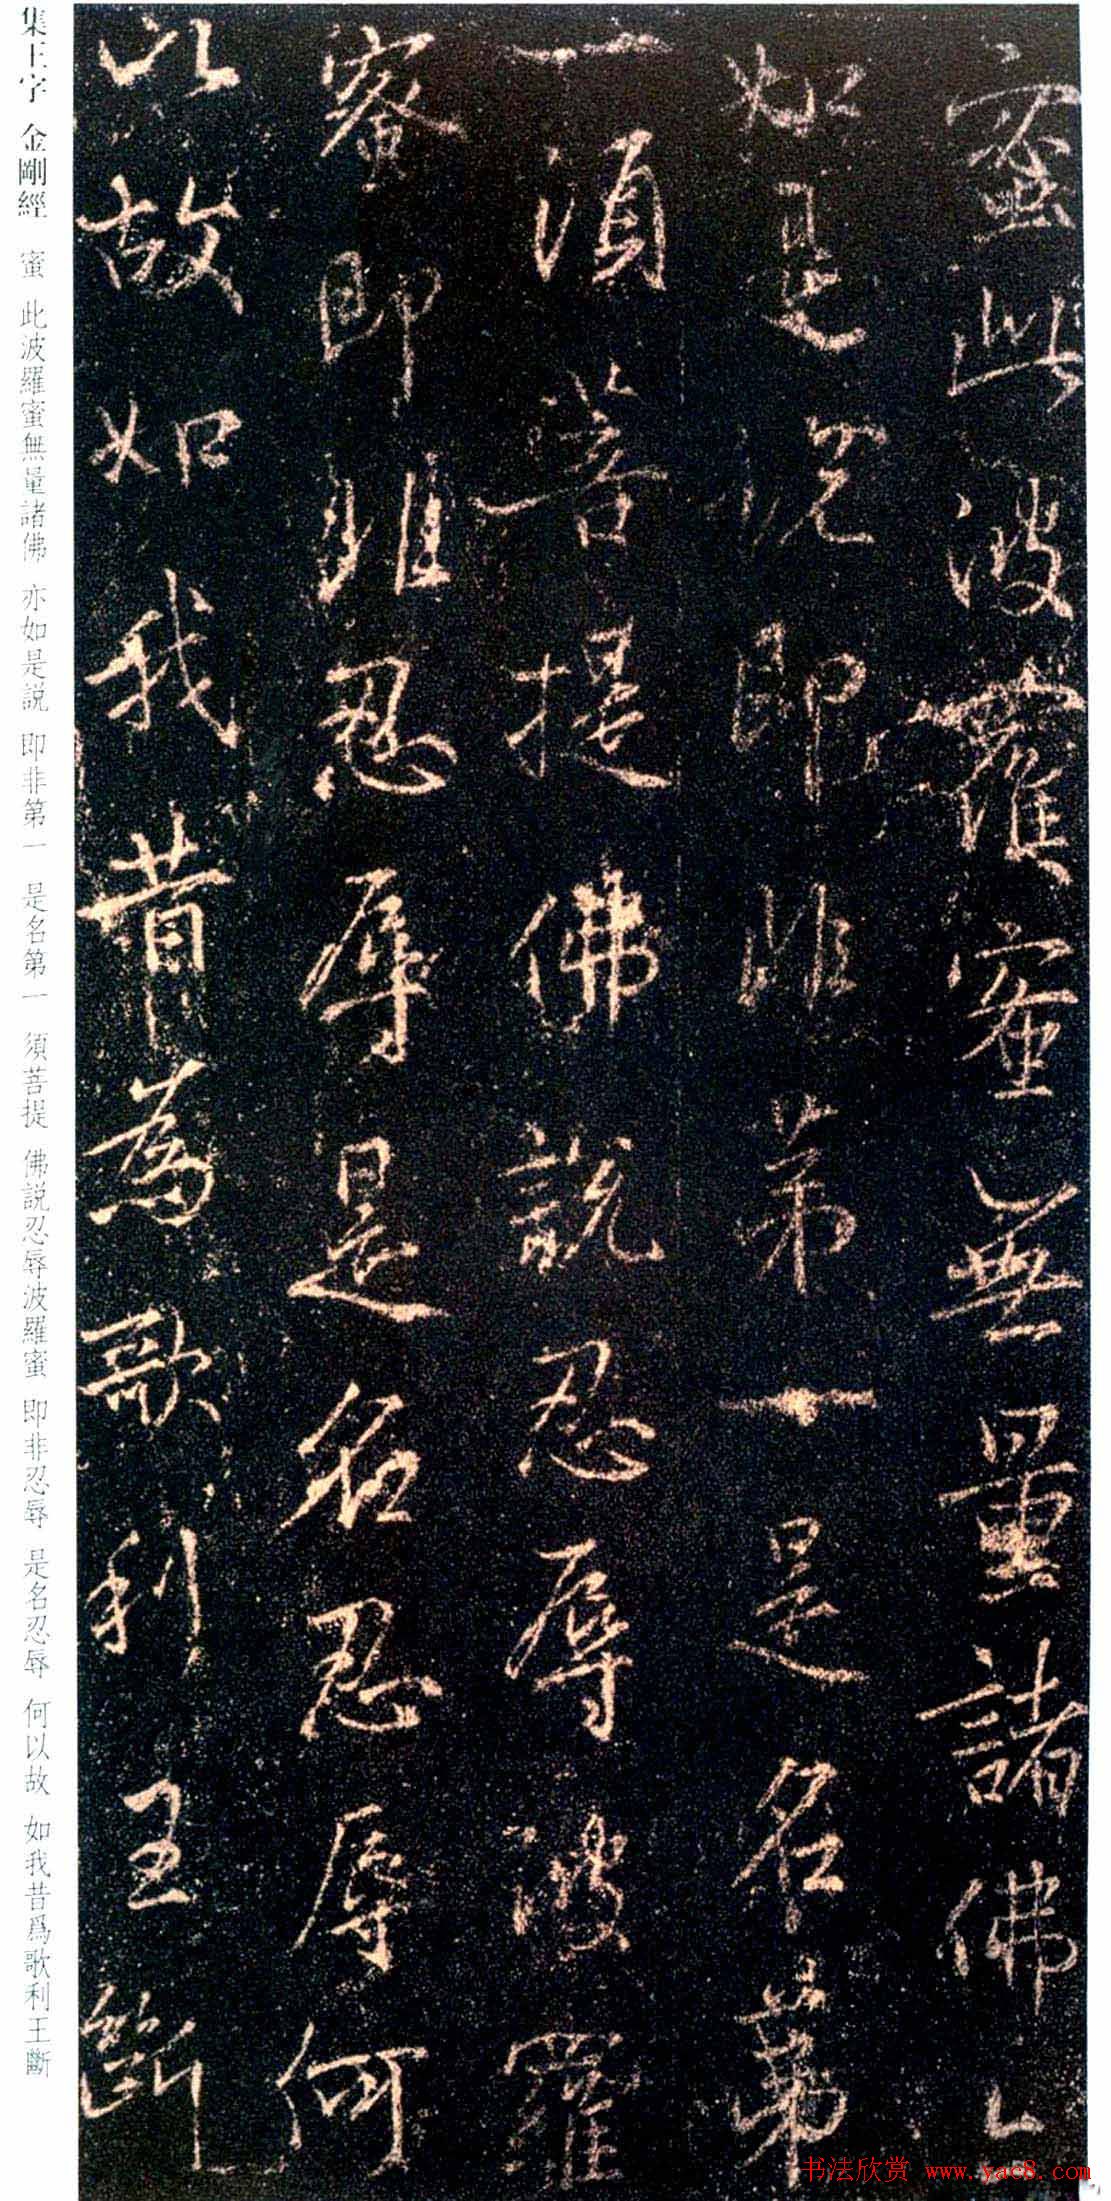 蜜此波羅蜜無量諸佛亦
如是說即非第一是名第
一須菩提佛說忍辱波羅
蜜即非忍辱是名忍辱何
以故如我昔為歌利王斷
集王字 金剛經 蜜 此波羅蜜無量諸佛 亦如是説 即非第一 是名第一 須菩提 佛説忍辱波羅蜜 即非忍辱 是名忍辱 何以故 如我昔爲歌利王斷
书法欣赏 www.yac8.com